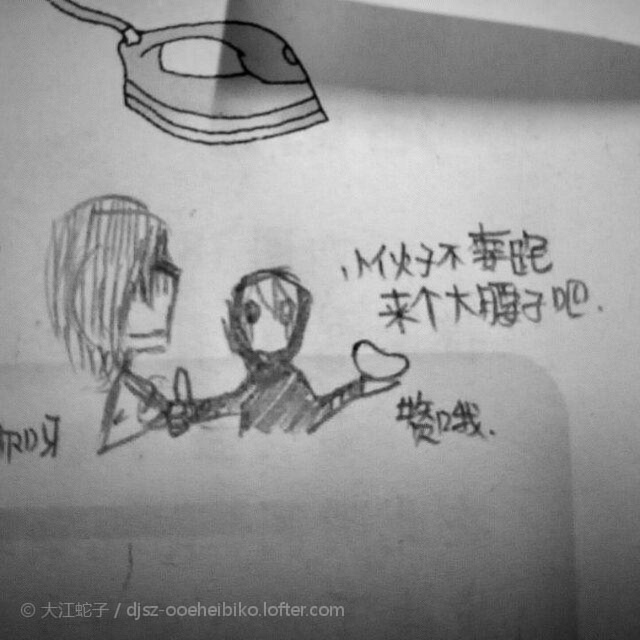 小伙子不要跑
来个大腰子吧.
赞哦.
© 大江蛇子 / djsz-ooeheibiko.lofter.com